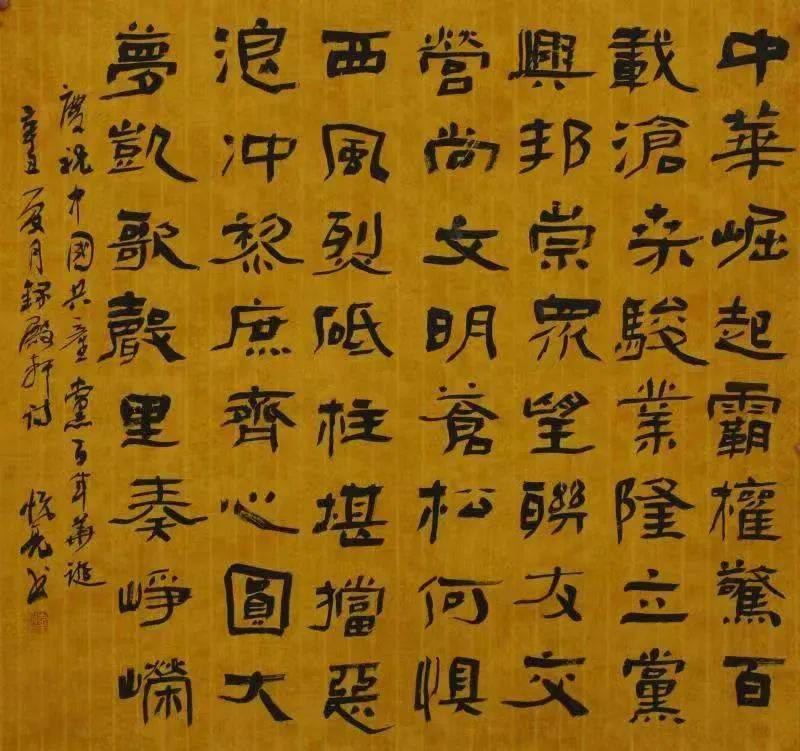 中華崛起霸權驚百
載滄桒駿業隆立黨
興邦崇眾望聯友交
營尚文明蒼松何懼
西風烈砥柱堪擋惡
浪冲黎庶齊心圓大
夢凱歌聲里奏崢嶸
慶祝中國共産黨百年華誕
辛丑夏月録殿軒诗 书